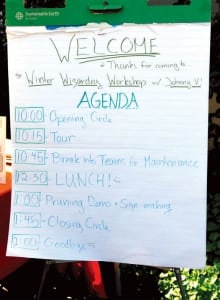 Sustainable Earth
WELCOME
Thanks for coming to
Winter Wizarding Workshop w/ Johnny V!
AGENDA
10:00 Opening Circle
10:15 - Tour
10:45 - Break into Teams for Maintenance
12:30 - LUNCH!
1:00 - Pruning Demo + Sign-making
1:45 - Closing Circle
2:00 - Goodbyes